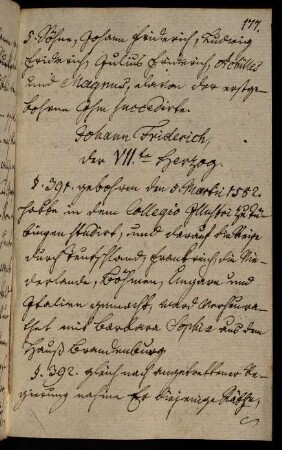 177.
5. Söhne, Johann Friderich, Ludwig
Friderich, Julius Friderich, Achilles
und Magnus, davon der erstge-
bohrne Ihm succedirte.
Johann Friderich,
der VII.te Herzog.
§. 391. gebohren den 5. Martii 1582.
hatte in dem Collegio Illustri zu Tü-
bingen studirt, und darauf die Reise
durch Teutschland, Franckreich, die Nie-
derlande, Böhmen, Ungarn und
Italien gemacht, ward verheura-
thet mit Barbara Sophia aus dem
Hauß Brandenburg.
§. 392. gleich nach angetrettener Re-
gierung nahme Er diejenige Räthe,